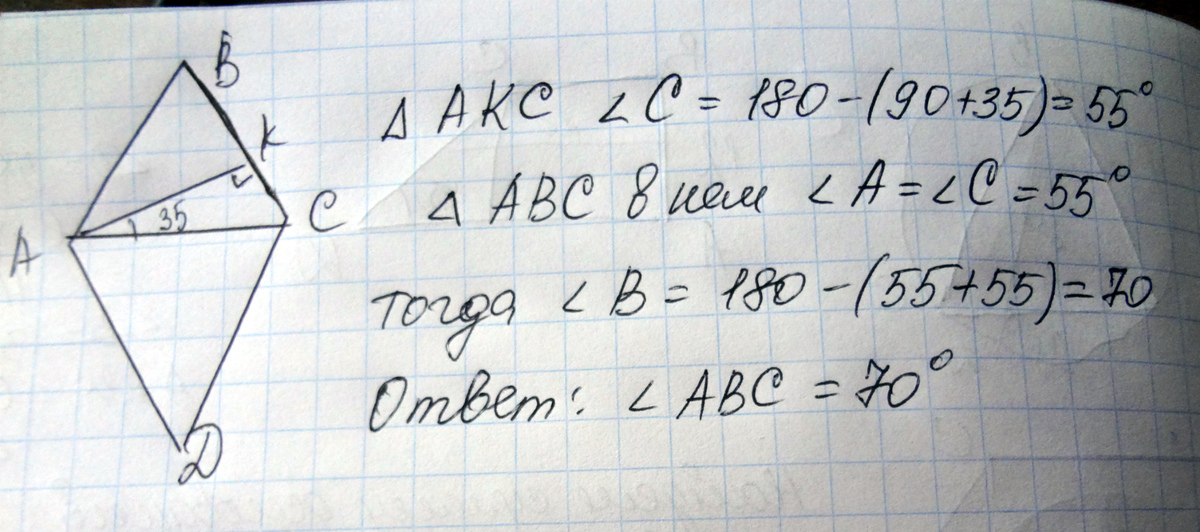 B
K
35
A
C
D
△ AKC ∠C = 180-(90+35)=55°
△ ABC в нем ∠A=∠C=55°
тогда ∠B = 180-(55+55)=70
Ответ: ∠ABC = 70°